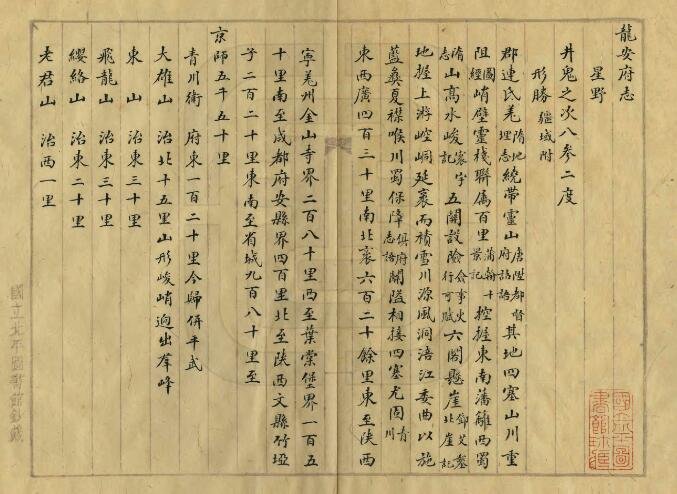 龍安府志
星野
井鬼之次入參二度
形勝 疆域附
郡連氐羌隋地理志繞帶靈山唐陞都督府誥語其地四塞山川重
阻圖經峭壁靈棧聯屬百里蒲翰十景記控握東南藩籬西蜀
隋志山高水峻寰宇記五關設險僉事火行可賦六閣懸崖鄧艾墓北崖記
地握上游崆峒延袤而積雪川源風洞涪江委曲以施
藍彜夏襟喉川蜀保障俱府志語關隘相接四塞尤固青川
東西廣四百三十里南北袤六百二十餘里東至陝西
寧羌州金山寺界二百八十里西至葉棠堡界一百五
十里南至成都府安縣界四百里北至陝西文縣竹埡
子二百二十里東南至省城九百八十里至
京師五千五十里
青川衛 府東一百二十里今歸併平武
大雄山 治北十五里山形峻峭迥出羣峰
東山 治東三十里
飛龍山 治東三十里
纓絡山 治東二十里
老君山 治西一里
國立北平圖書館收藏